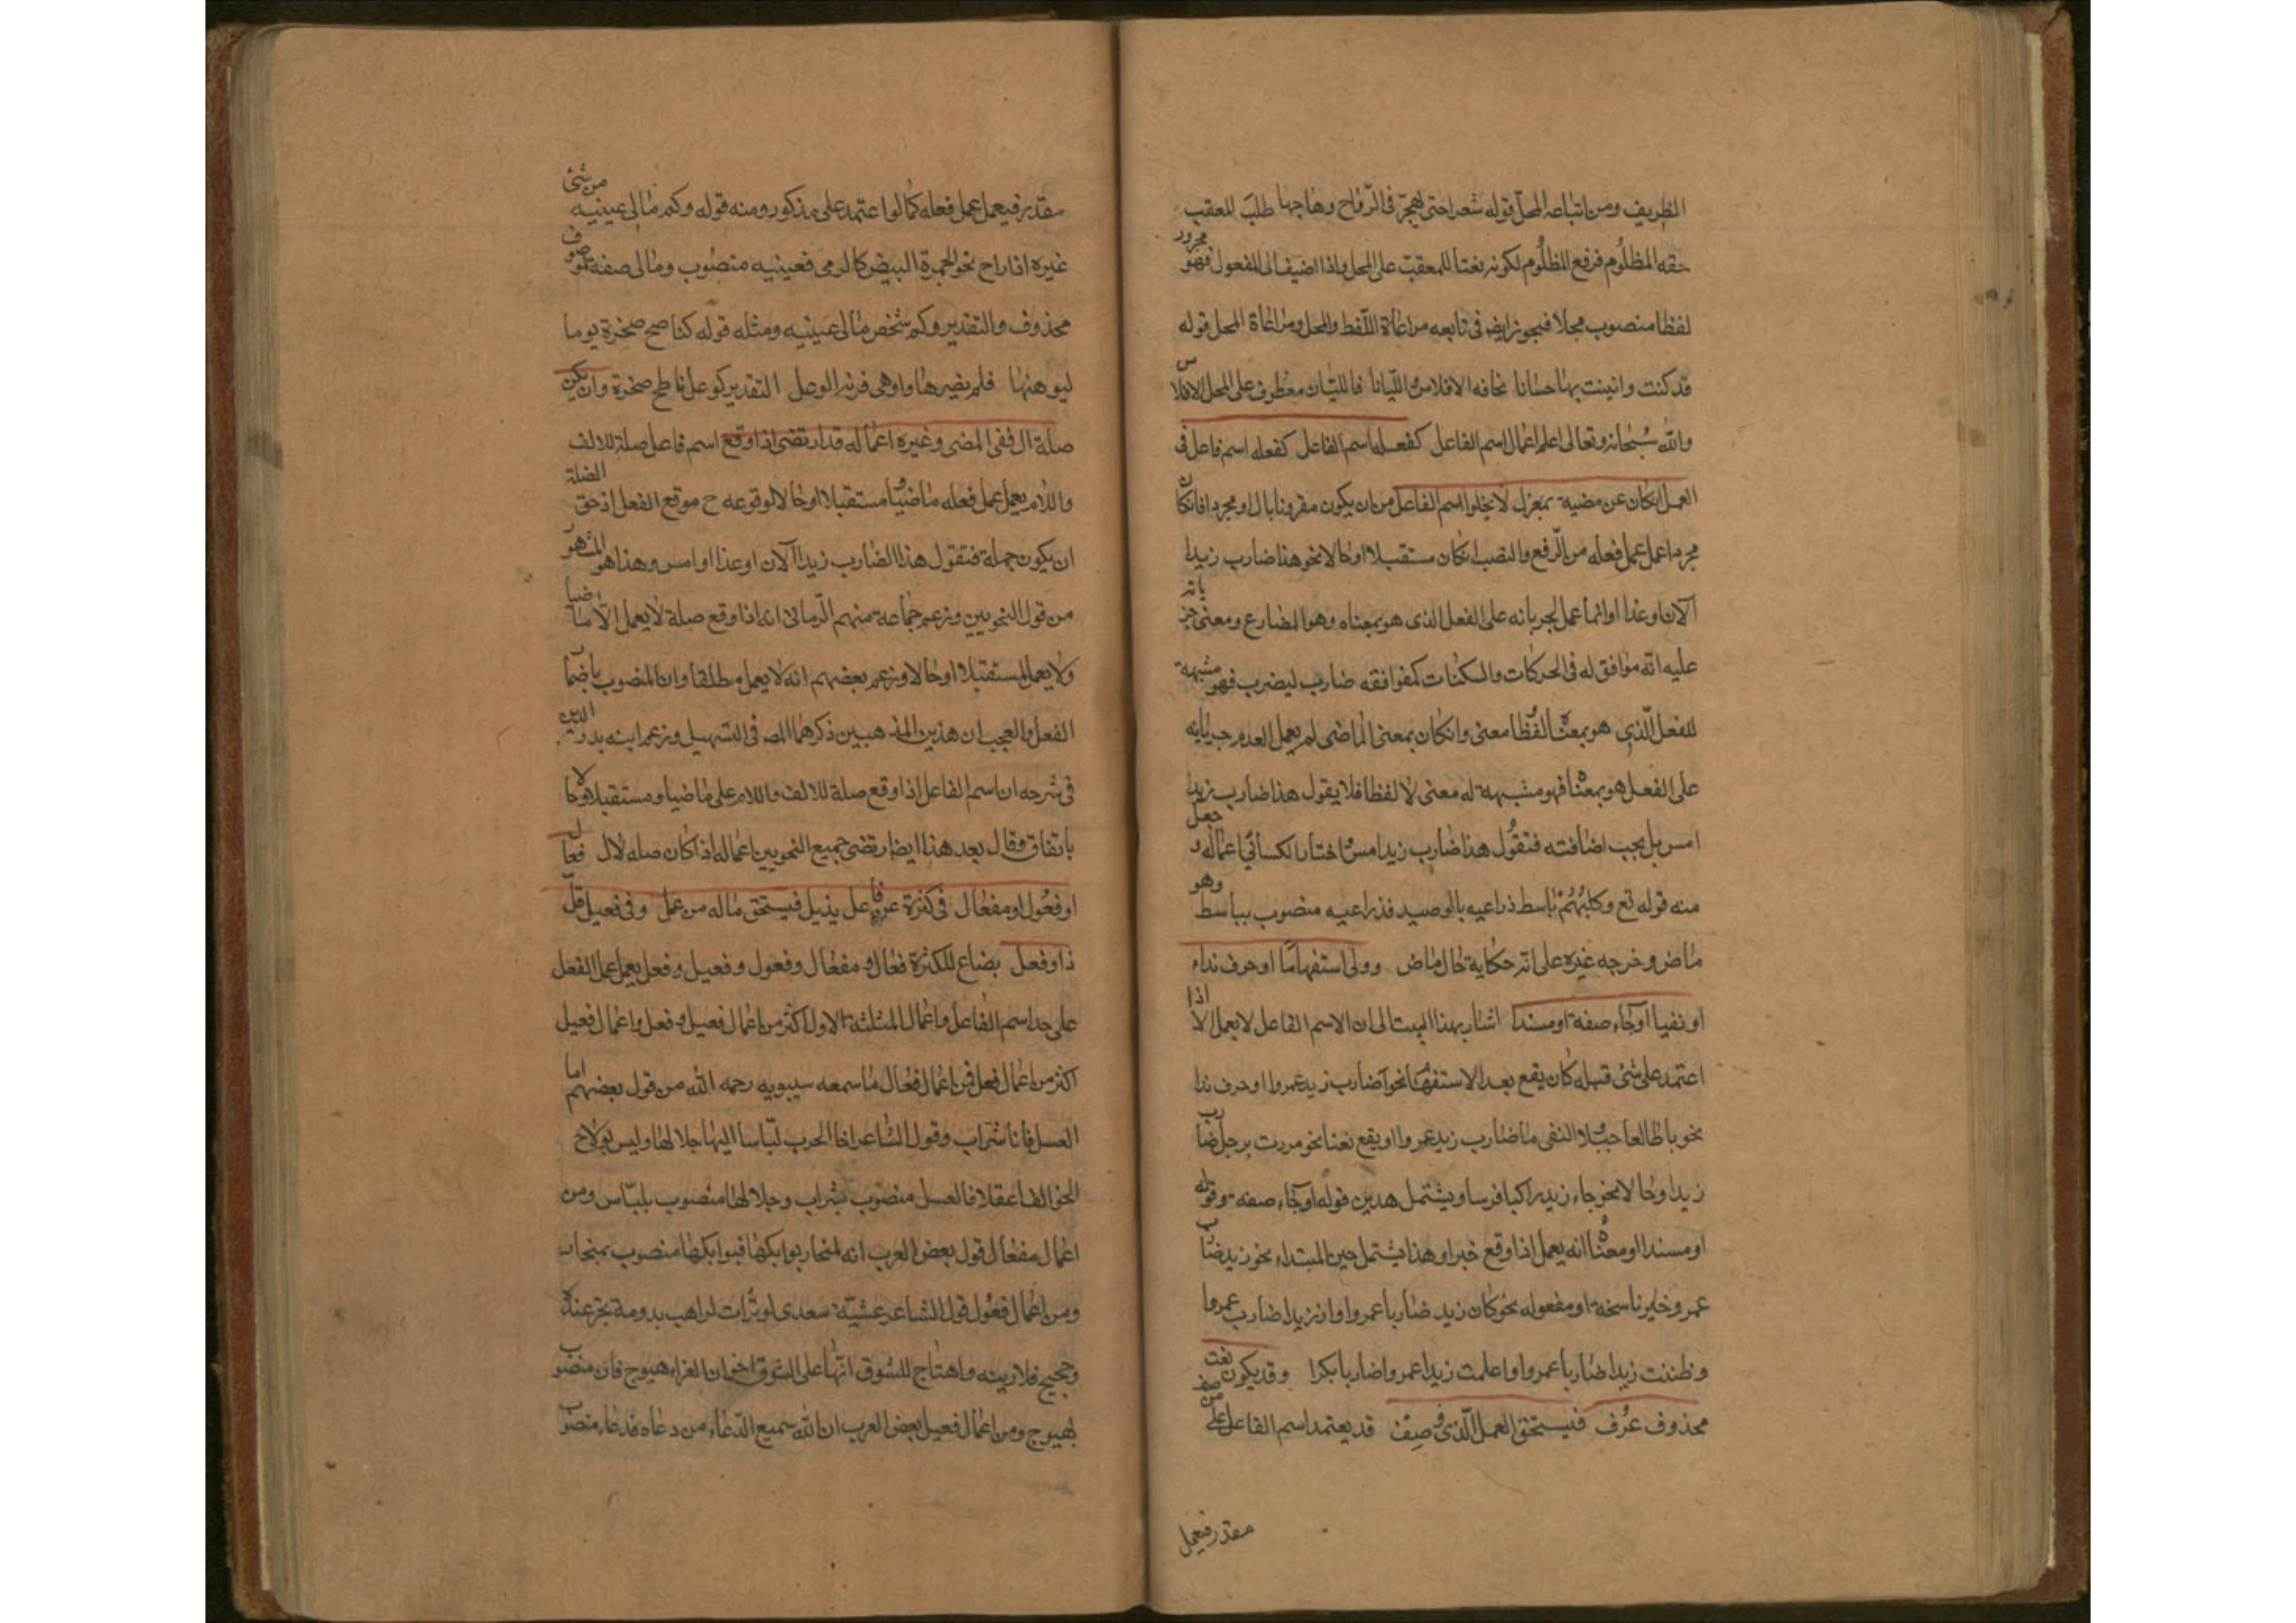 الظريف ومن اتباعه المحل قوله شعر احتى تهجر فى الرواح وهاجها طلب المعقب
حقه المظلوم فرفع المظلوم لكونه نعتا للمعقب على المحل واذا اضيف الى المفعول فهو مجرور
لفظا منصوب محلا فيجوز ايض فى تابعه مراعاة اللفظ والمحل ومراعاة المحل قوله
قد كنت داينت بها حسانا مخافه الافلاس والليانا فالليان معطوف على المحل الافلاس
والله سبحانه وتعالى اعلم اعمال اسم الفاعل كفعله اسم الفاعل كفعله اسم فاعل فى
العمل انكان عن مضيه بمعزل لا يخلوا اسم الفاعل من ان يكون مقرونا بال او مجردا فانكان
مجردا عمل عمل فعله من الرفع والنصب انكان مستقبلا او حالا نحو هذا ضارب زيدا
الآن او غدا اوانما عمل لجريانه على الفعل الذى هو بمعناه وهو المضارع ومعنى جريانه
عليه انه موافق له فى الحركات والسكنات كموافقه ضارب ليضرب فهو مشبهة
للفعل الذى هو بمعناه لفظا معنى وانكان بمعنى الماضى لم يعمل لعدم جريانه
على الفعل هو بمعناه فهو مشبهة له معنى لا لفظا فلا يقول هذا ضارب زيدا
امس بل يجب اضافته فتقول هذا ضارب زيد امس واختار الكسائى اعماله وجعل
منه قوله تع وكلبهم باسط ذراعيه بالوصيد فذراعيه منصوب بباسط وهو
ماض وخرجه غيره على انه حكاية حال ماض وولى استفهاما او حرف نداء
او نفيا او جاء صفة او مسندا اشار بهذا البيت الى ان الاسم الفاعل لا يعمل الا اذا
اعتمد على شئ قبله كان يقع بعد الاستفهام نحو أضارب زيد عمروا او حرف ندا
نحو يا طالعا جبلا والنفى ما ضارب زيد عمروا او يقع نعتا نحو مررت برجل ضارب
زيدا او حالا نحو جاء زيد راكبا فرسا ويشتمل هدين قوله او جاء صفة وقوله
او مسندا او معناه انه يعمل اذا وقع خبرا وهذا يشتمل خبر المبتداء نحو زيد ضارب
عمرو وخبر ناسخة او مفعوله نحو كان زيد ضاربا عمروا وان زيدا ضارب عمروا
وظننت زيدا ضاربا عمروا واعلمت زيدا عمروا ضاربا بكرا وقد يكون نعت
محذوف عرف فيستحق العمل الذى وصف قد يعتمد اسم الفاعل على موصوف
مقدر فيعمل
مقدر فيعمل عمل فعله كما لو اعتمد على مذكور ومنه قوله وكم مالئ عينيه من شئ
غيره اذا راح نحو الجمرة البيض كالدمى فعينيه منصوب ومالى صفة لموصوف
محذوف والتقدير وكم شخص مالئ عينيه ومثله قوله كناطح صخرة يوما
ليوهنها فلم يضرها واوهى قرنه الوعل التقدير كوعل ناطح صخرة وان يكن
صلة ال ففى المضى وغيره اعماله قد ارتضى اذا وقع اسم فاعل صلة للالف
واللام يعمل عمل فعله ماضيا ومستقبلا او حالا لوقوعه ح موقع الفعل اذ حق الصلة
ان يكون جملة فتقول هذا الضارب زيدا الآن او غدا او امس وهذا هو المشهور
من قول النحويين وزعم جماعة منهم الرمانى انه اذا وقع صلة لا يعمل الا ماضيا
ولا يعمل مستقبلا او حالا وزعم بعضهم انه لا يعمل مطلقا وان المنصوب باضمار
الفعل والعجب ان هذين المذهبين ذكرهما المصـ فى التسهيل وزعم ابنه بدر الدين
فى شرحه ان اسم الفاعل اذا وقع صلة للالف واللام على ماضيا ومستقبلا او حالا
باتفاق وقال بعد هذا ايضا ارتضى جميع النحويين اعماله اذا كان صله لال فعال
او فعول او مفعال فى كثرة عن فاعل بديل فيستحق ماله من عمل وفى فعيل قل
ذا وفعل يصاغ للكثرة فعال ومفعال وفعول وفعيل وفعل يعمل عمل الفعل
على حد اسم الفاعل واعمال المثلثة الاول اكثر من اعمال فعيل وفعل واعمال فعيل
اكثر من اعمال فعل فمن اعمال فعال ما سمعه سيبويه رحمه الله من قول بعضهم اما
العسل فانا شراب وقول الشاعر اخا الحرب لباسا اليها جلالها وليس بولاج
الخوالف اعقلا فالعسل منصوب بشراب وجلالها منصوب بلباس ومن
اعمال مفعال قول بعض العرب انه لمنحار بوابكها فبوابكها منصوب بمنحار
ومن اعمال فعول قول الشاعر عشية سعدى لو تراءت لراهب بدومة تجر عنده
وحجيج قلا دينه واهتاج للشوق انها على الشوق اخوان العزاء هيوج فان منصوب
بهيوج ومن اعمال فعيل بعض العرب ان الله سميع الدعاء من دعاه فدعاء منصوب